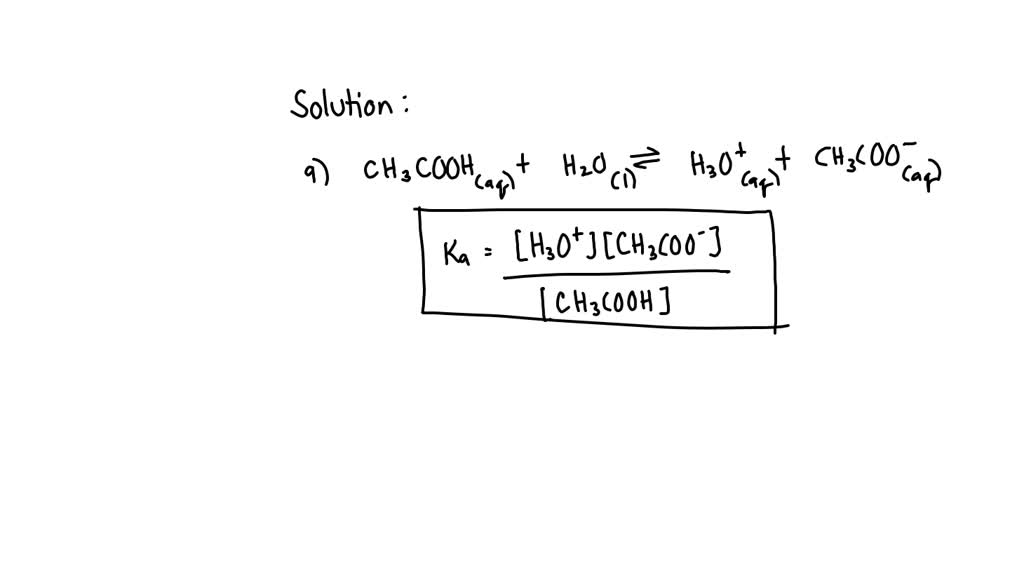 Solution:
a) CH₃COOH(aq) + H₂O(l) ⇌ H₃O⁺(aq) + CH₃COO⁻(aq)
Ka = [H₃O⁺][CH₃COO⁻]
[CH₃COOH]